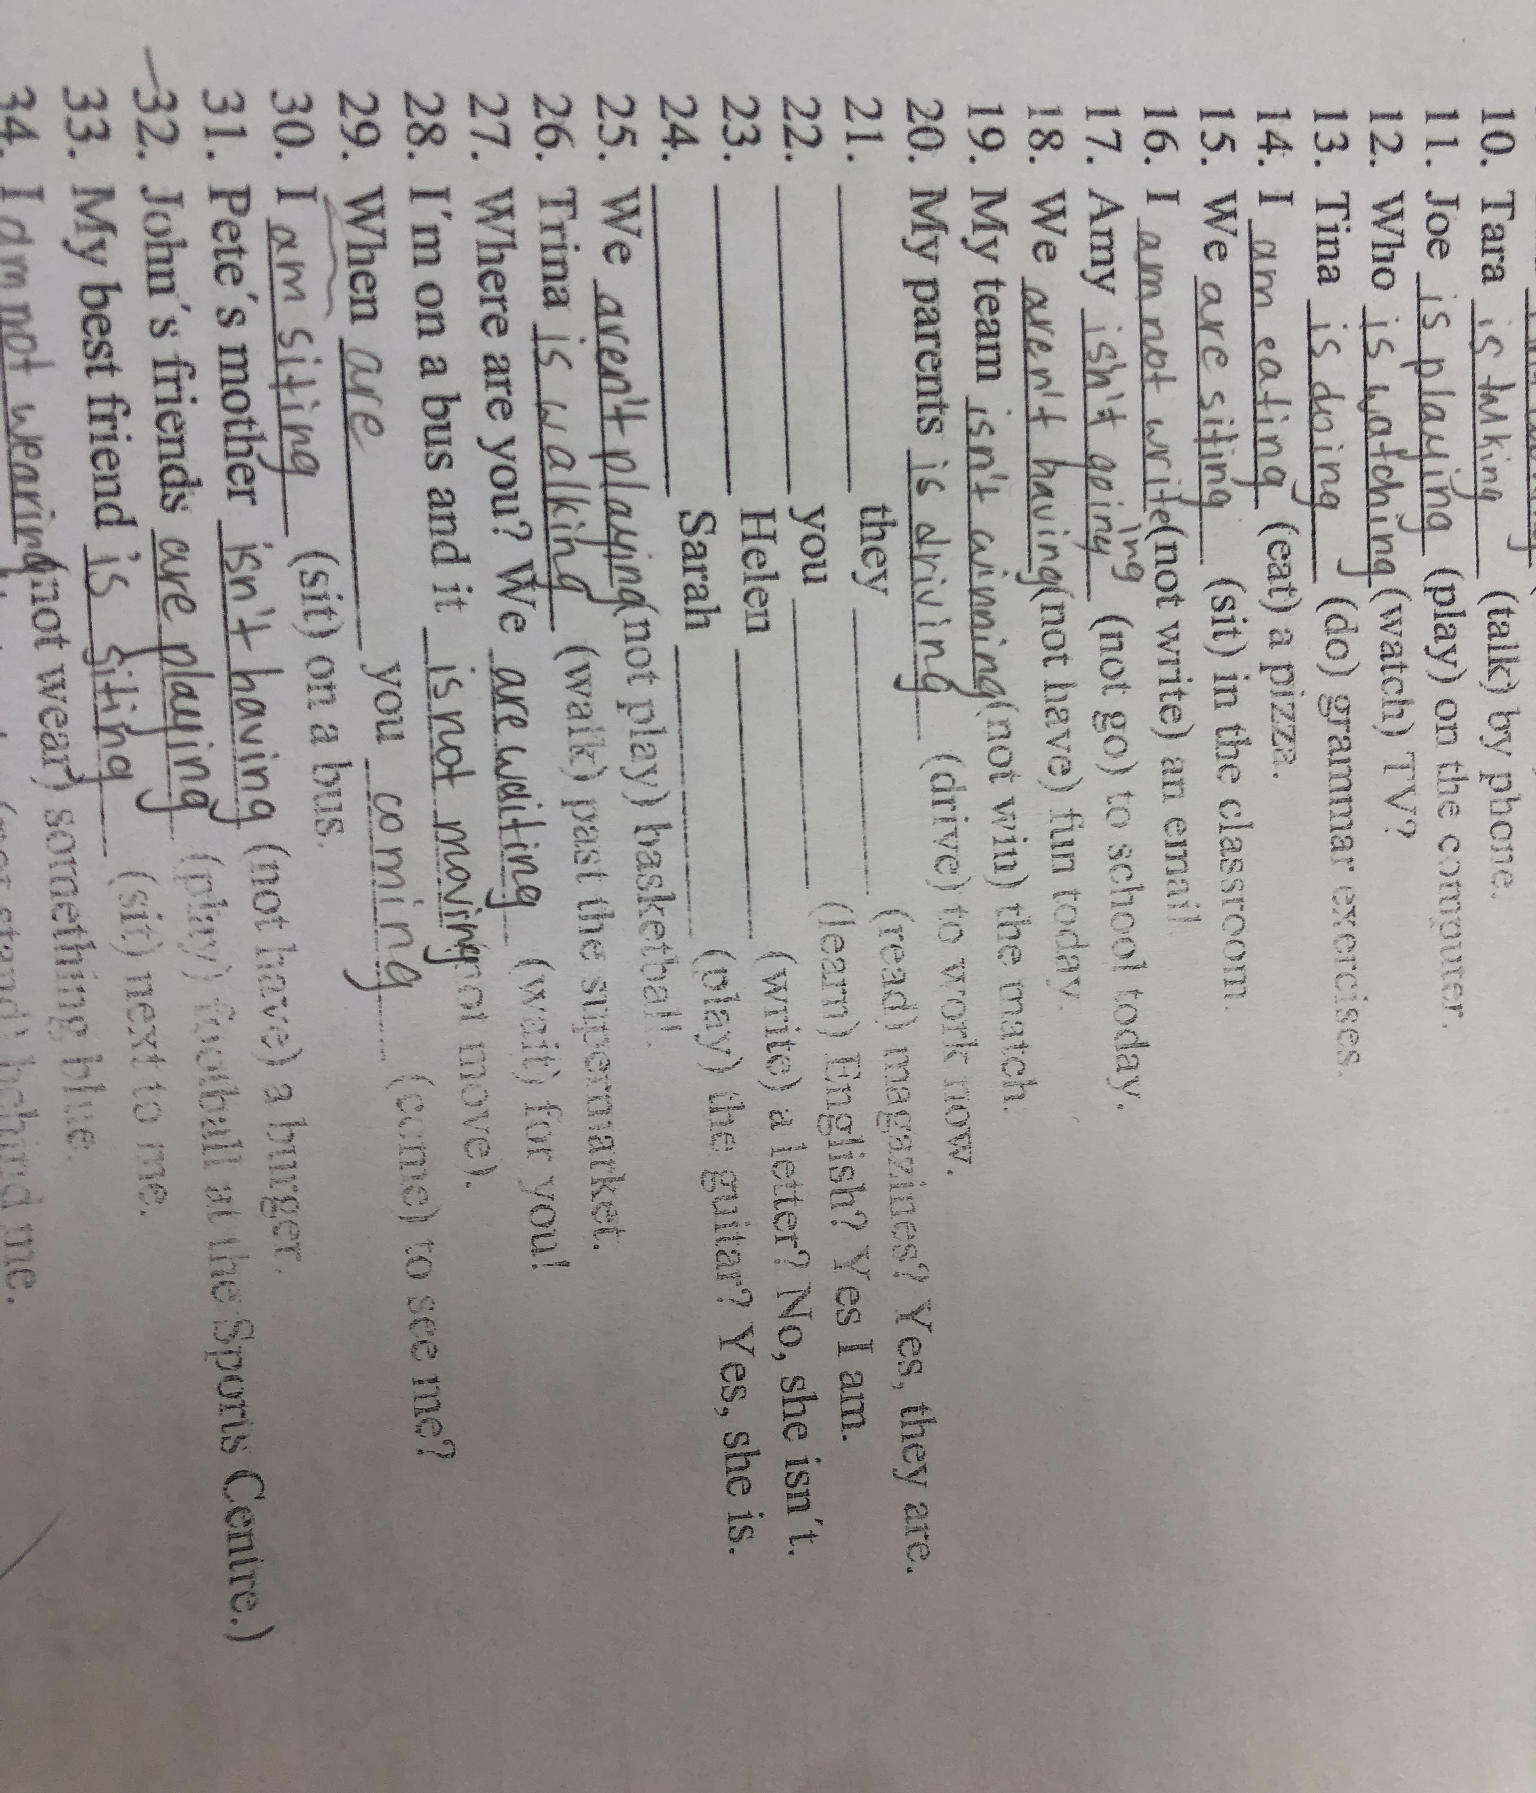 10. Tara is talking (talk) by phone.
11. Joe is playing (play) on the computer.
12. Who is watching (watch) TV?
13. Tina is doing (do) grammar exercises.
14. I am eating (eat) a pizza.
15. We are siting (sit) in the classroom.
16. I am not write (not write) an email.
ing
17. Amy ish't going (not go) to school today.
18. We aren't having (not have) fun today.
19. My team isn't winning (not win) the match.
20. My parents is driving (drive) to work now.
21. ____ they ____ (read) magazines? Yes, they are.
22. ____ you ____ (learn) English? Yes I am.
23. ____ Helen ____ (write) a letter? No, she isn't.
24. ____ Sarah ____ (play) the guitar? Yes, she is.
25. We aren't playing (not play) basketball.
26. Trina is walking (walk) past the supermarket.
27. Where are you? We are waiting (wait) for you!
28. I'm on a bus and it is not moving not move).
29. When are you coming (come) to see me?
30. I am siting (sit) on a bus.
31. Pete's mother isn't having (not have) a burger.
32. John's friends are playing (play) football at the Sports Centre.)
33. My best friend is siting (sit) next to me.
34. I am not wearing (not wear) something blue.
(not stand) behind me.